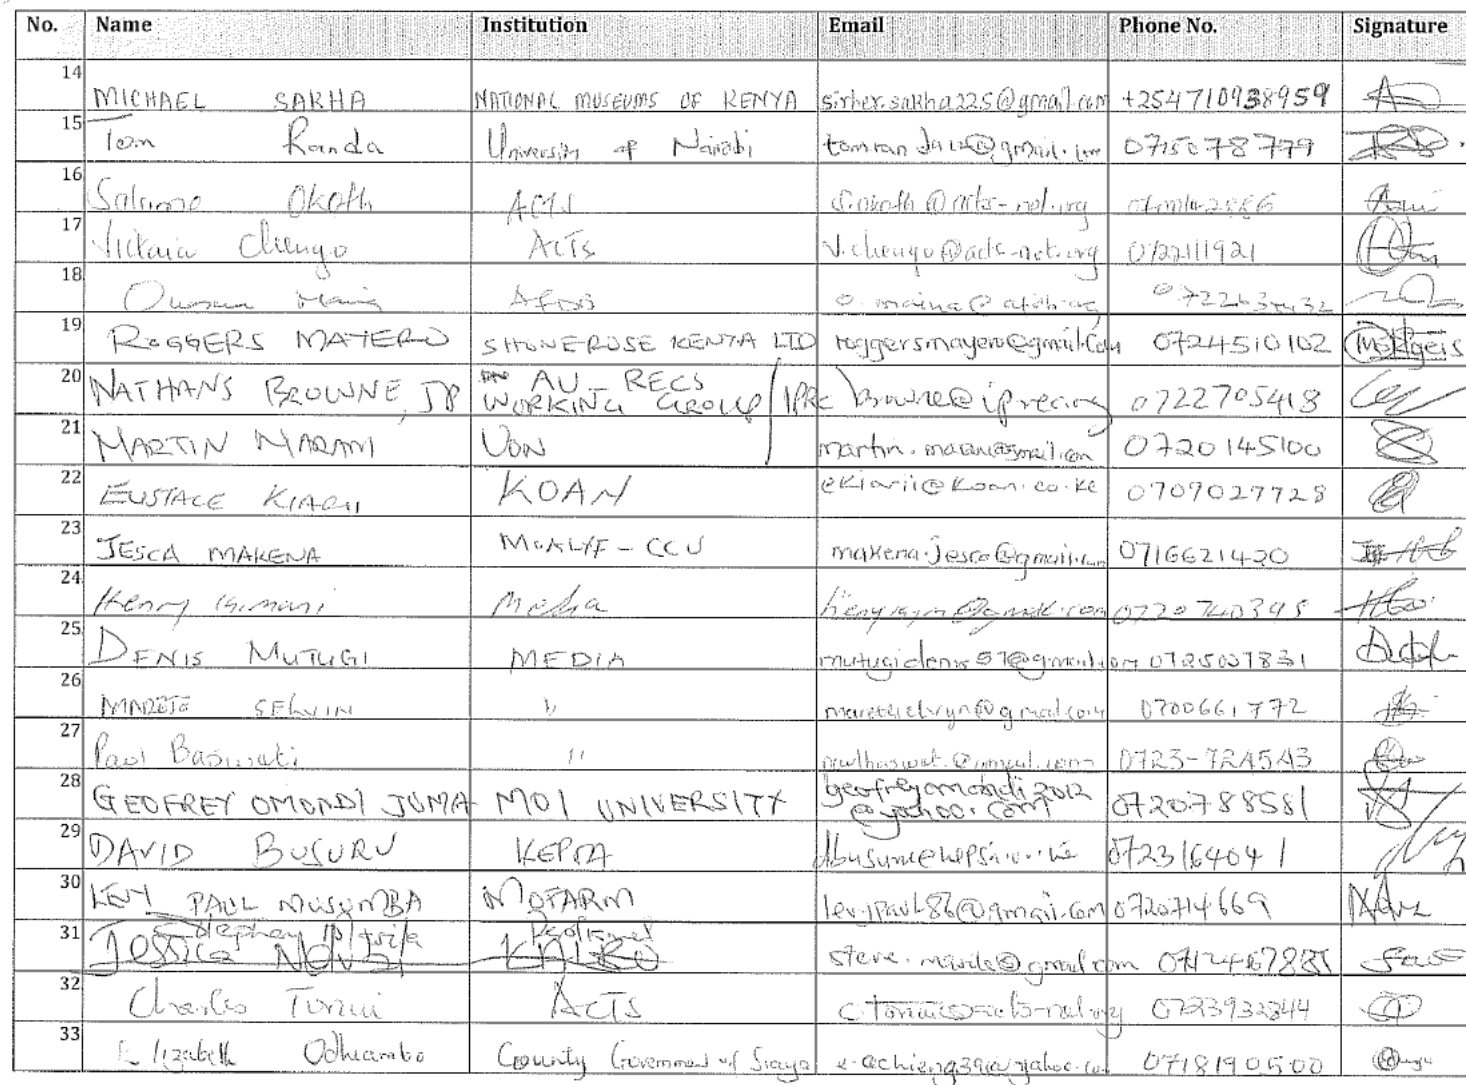 No. Name Institution Email Phone No. Signature
14 MICHAEL SAKHA NATIONAL MUSEUMS OF KENYA sirher.sakha225@gmail.com +254710938959
15 Tom Randa University of Nairobi 0715078779
16 Salome Okoth ACTS s.okoth@acts-net.org
17 Victoria Chengo ACTS v.chengo@acts-net.org 0722111921
18 AFDB
19 ROGGERS MAYERO SHONEROSE KENYA LTD roggersmayero@gmail.com 0724510102
20 NATHANS BROWNE, JP AU-RECS WORKING GROUP/IPRC 0722705418
21 MARTIN MARANI UON 0720145100
22 EUSTACE KIARII KOAN ekiarii@koan.co.ke 0709027728
23 JESCA MAKENA MoALF-CCU makena.jesca@gmail.com 0716621420
24 Henry Kimani Media 0720740395
25 DENIS MUTUGI MEDIA mutugidenis57@gmail.com 0725037831
26 SELVIN " 0700661772
27 Paul " 0723-724543
28 GEOFREY OMONDI JUMA MOI UNIVERSITY geofreyomondi2012
@yahoo.com 0720788581
29 DAVID BUSURU KEPSA 0723164041
30 LEVY PAUL MUSUMBA MOFARM levypaul86@gmail.com 0720714669
31 Jessica
32 Charles Tonui ACTS
33 Elizabeth Odhiambo County Government of Siaya e-achieng39@yahoo.com 0718190500